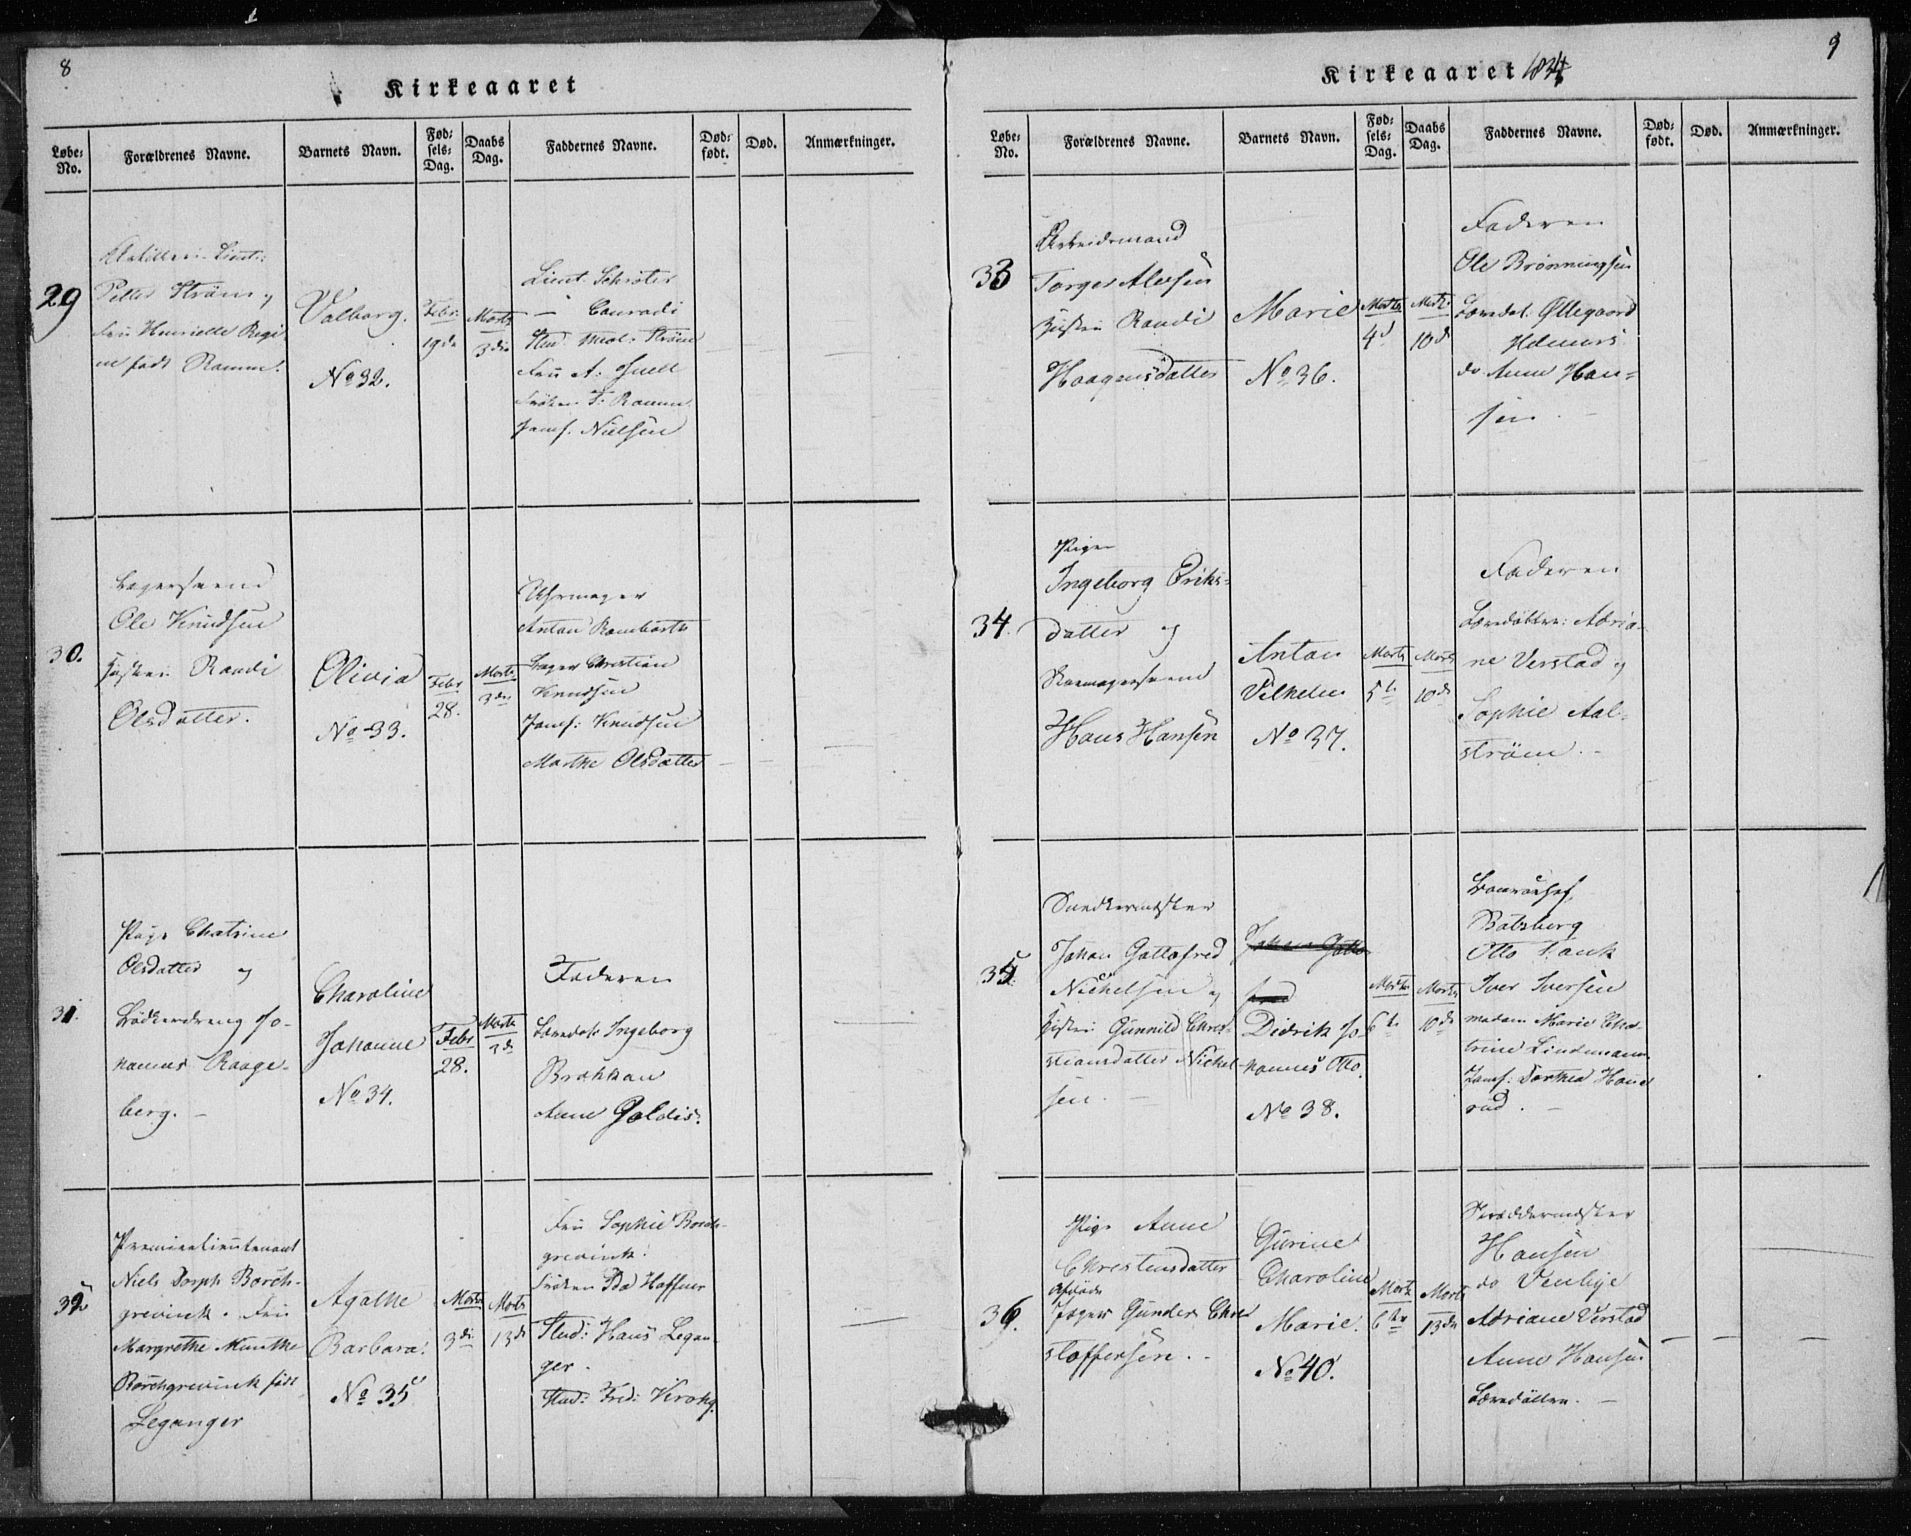 8
Kirkeaaret
Løbe-No.
Forældrenes Navne.
Barnets Navn.
Fød-sels-Dag.
Daabs Dag.
Faddernes Navne.
Død-født.
Død.
Anmærkninger.
29
Lieut:
Petter Strøm
Henriette Regi
ne født Ramm.
Valborg.
No 32.
Febr.
19de
Marts
3die
Lieut. Schrøter
— Conradi
Strøm
Fru A. Snell
Frøken F. Ramm
Jomf. Nielsen
30.
Ole Knudsen
Hustru Randi
Olsdatter.
Olivia
No 33.
Febr
28.
Marts
3die
Uhrmager
Anton Rambarth
Bager Christian
Knudsen
Jomf: Knudsen
Marthe Olsdatter
31.
Pige Chatrine
Olsdatter og
Bødkerdreng Jo-
hannes Raage-
berg. —
Charoline
Johanne
No 34.
Febr
28.
Marts
3de
Faderen
Ingeborg
Brakkan
Anne Goldis.
32
Premierlieutenant
Niels Dorph Borch-
grevink. Fru
Margrethe Munthe
Borchgrevink født
Leganger
Agathe
Barbara.
No 35
Marts
3die
Marts
13de
Fru Sophie Borch-
grevink.
Frøken Ida Haffner
Stud: Hans Legan-
ger.
Stud: Fred: Krohg.
9
Kirkeaaret 1834
Løbe-No.
Forældrenes Navne.
Barnets Navn.
Fød-sels-Dag.
Daabs Dag.
Faddernes Navne.
Død-født.
Død.
Anmærkninger.
33
Arbeidsmand
Torger Alersen
Hustru Randi
Haagensdatter
Marie
No 36.
Marts
4d
Marts
10d
Faderen
Ole Brønningsen
Øllegaard
do. Anne Han-
sen. —
34.
Pige
Ingeborg Eriks-
datter og
Skomagersvend
Hans Hansen
Anton
Vilhelm
No 37.
Marts
5te
Marts
10de
Faderen
Adria-
ne Verstad og
Sophie Aal-
strøm. —
35
Snedkermester
Johan Gottofred
Nichelsen og
Hustru Gunnild Chris-
tiansdatter Nichel-
sen. —
Johan Gotto-
fred
Didrik Jo-
hannes Otto.
No 38.
Marts
6te
Marts
10de
Balzberg
Otto Fank
Iver Iversen
madam Marie Cha-
trine Lindemann
Jomf: Dorthea Hauer
rud. —
36.
Pige Anne
Christensdatter
Jæger Gunder Chri
stoffersen. —
Gurine
Charoline
Marie.
No 40.
Marts
6te
Marts
13de
Skræddermester
Hansen
do Venlige
Adriane Verstad
Anne Hansen